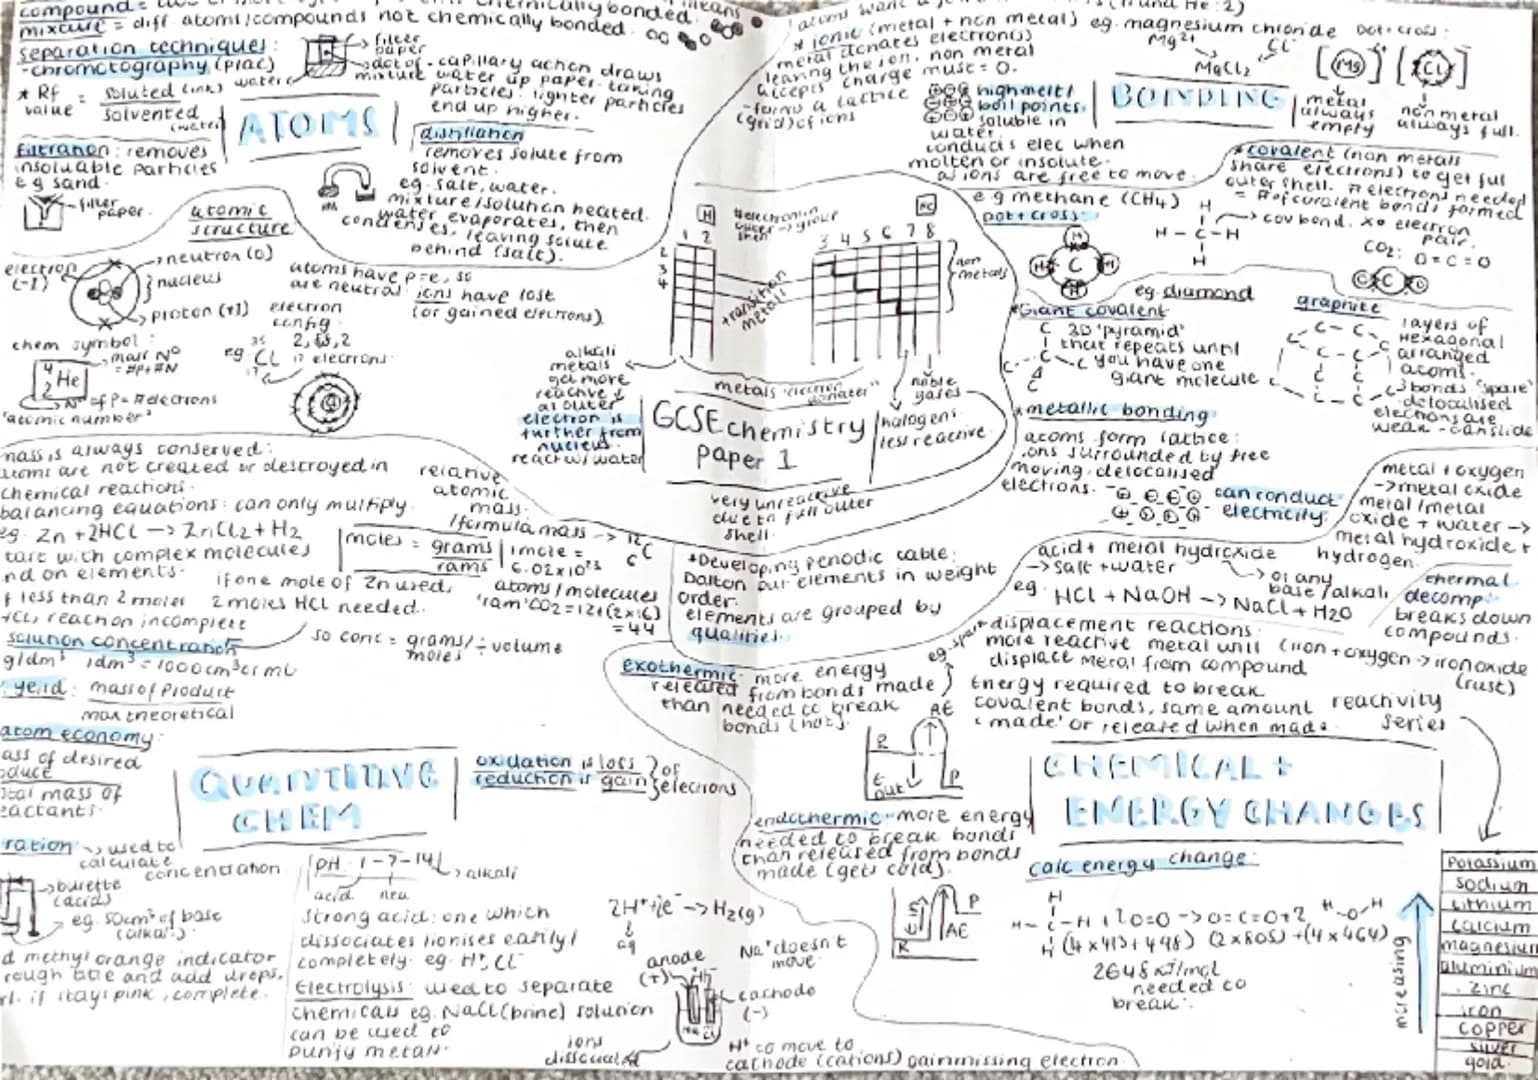 compound =
mixture = diff atoms/compounds not chemically bonded.
separation techniques:
- chromotography (prac)
* Rf value = soluted (ink)
solvented (water)
water
filter paper
dot of mixture
- capillary action draws
water up paper taking
particles. lighter particles
end up higher.
ATOMS
filtration: removes
insoluable particles
eg sand.
filter paper.
distillation
removes solute from
solvent.
eg. salt, water.
mixture/solution heated.
water evaporates, then
condenses, leaving solute
behind (salt).
atomic structure
electron (-1)
neutron (0)
nucleus
proton (+1)
atoms have p=e, so
are neutral. ions have lost
(or gained electrons).
electron config:
2, 8, 2
eg. Cl 17 electrons.
chem symbol:
4 He 2
mass No = #p+#N
No of p = # electrons
'atomic number'
* ionic (metal + non metal) eg. magnesium chloride dot+cross:
metal donates electron(s)
leaving the ion. non metal
accepts charge must = 0.
- forms a lattice
(grid) of ions
Mg2+ Cl-
MgCl2
[Mg] [Cl]
metal always empty
non metal always full.
high melt/
boil points.
soluble in
water.
conducts elec when
molten or insolute.
as ions are free to move.
BONDING
* covalent (non metals
share electrons) to get full
outer shell. # electrons needed
= # of covalent bonds formed
e.g methane (CH4)
dot + cross:
H
H - C - H
H
cov bond. xo electron pair.
CO2:
O = C = O
eg. diamond
* Giant covalent
3D 'pyramid'
that repeats until
you have one
giant molecule
graphite
layers of
hexagonal
arranged
atoms.
3 bonds 'spare'
delocalised
electrons are
weak - can slide
* metallic bonding
atoms form lattice:
ions surrounded by free
moving. delocalised
electrons.
can conduct
electricity.
H
He
# electron in outer shell -> group
1 2 3 4 5 6 7 8
transition metals
non metals
metals
alkali
metals
get more
reactive ↓
as outer
electron is
further from
nucleus
react w/ water
noble gases
halogens.
less reactive.
GCSE chemistry
paper 1
very unreactive
due to full outer
shell.
mass is always conserved:
atoms are not created or destroyed in
chemical reactions.
balancing equations: can only multiply.
eg. Zn + 2HCl -> ZnCl2 + H2
start with complex molecules
end on elements.
if one mole of Zn used,
2 moles HCl needed.
if less than 2 moles
HCl, reaction incomplete
relative
atomic
mass.
/formula mass -> 12C
moles = grams
rams
1 mole =
6.02x10^23
atoms/molecules
'ram' CO2 = 12+(2x16)
= 44
solution concentration
g/dm3 1dm3 = 1000cm3 or ml
so conc = grams/moles ÷ volume
yeild: mass of product
max theoretical
atom economy:
mass of desired
produce
total mass of
reactants.
QUANTITIVE
CHEM
oxidation is loss
reduction is gain
of electrons
-> used to
calculate
concentration
burette (acid)
eg. 50cm3 of base (alkali).
methyl orange indicator
if stays pink, complete.
pH 1-7-14
acid neu alkali
strong acid: one which
dissociates (ionises easily/
completely. eg. H+, Cl-
Electrolysis: used to separate
chemicals eg. NaCl (brine) solution
can be used to
purify metals.
2H+ + 2e- -> H2(g)
aq
anode (+)
Na+ doesn't
move.
cathode (-)
ions
H+ to move to
cathode (cations) gain missing electron.
* Developing periodic table:
Dalton put elements in weight
order.
elements are grouped by
qualities.
metal + oxygen
-> metal oxide
metal/metal
oxide + water ->
metal hydroxide +
hydrogen.
acid + metal hydroxide
-> salt + water
or any
base/alkali
eg. HCl + NaOH -> NaCl + H2O
thermal
decomp:
breaks down
compounds.
* displacement reactions:
more reactive metal will
displace metal from compound
(iron + oxygen -> iron oxide
(rust)
Energy required to break
covalent bonds, same amount
'made' or released when made.
exothermic: more energy
released from bonds made
than needed to break
bonds (hot).
AE
R
P
E out
endothermic - more energy
needed to break bonds
than released from bonds
made (gets cold).
P
AE
R
CHEMICAL +
ENERGY CHANGES
calc energy change:
H
H - C - H + 2O=O -> O=C=O + 2 H-O-H
H
(4 x 413 + 498) (2x805) + (4 x 464)
2648 kJ/mol
needed to
break.
reactivity
series
increasing
Potassium
sodium
Lithium
calcium
magnesium
aluminium
zinc
iron
copper
silver
gold.